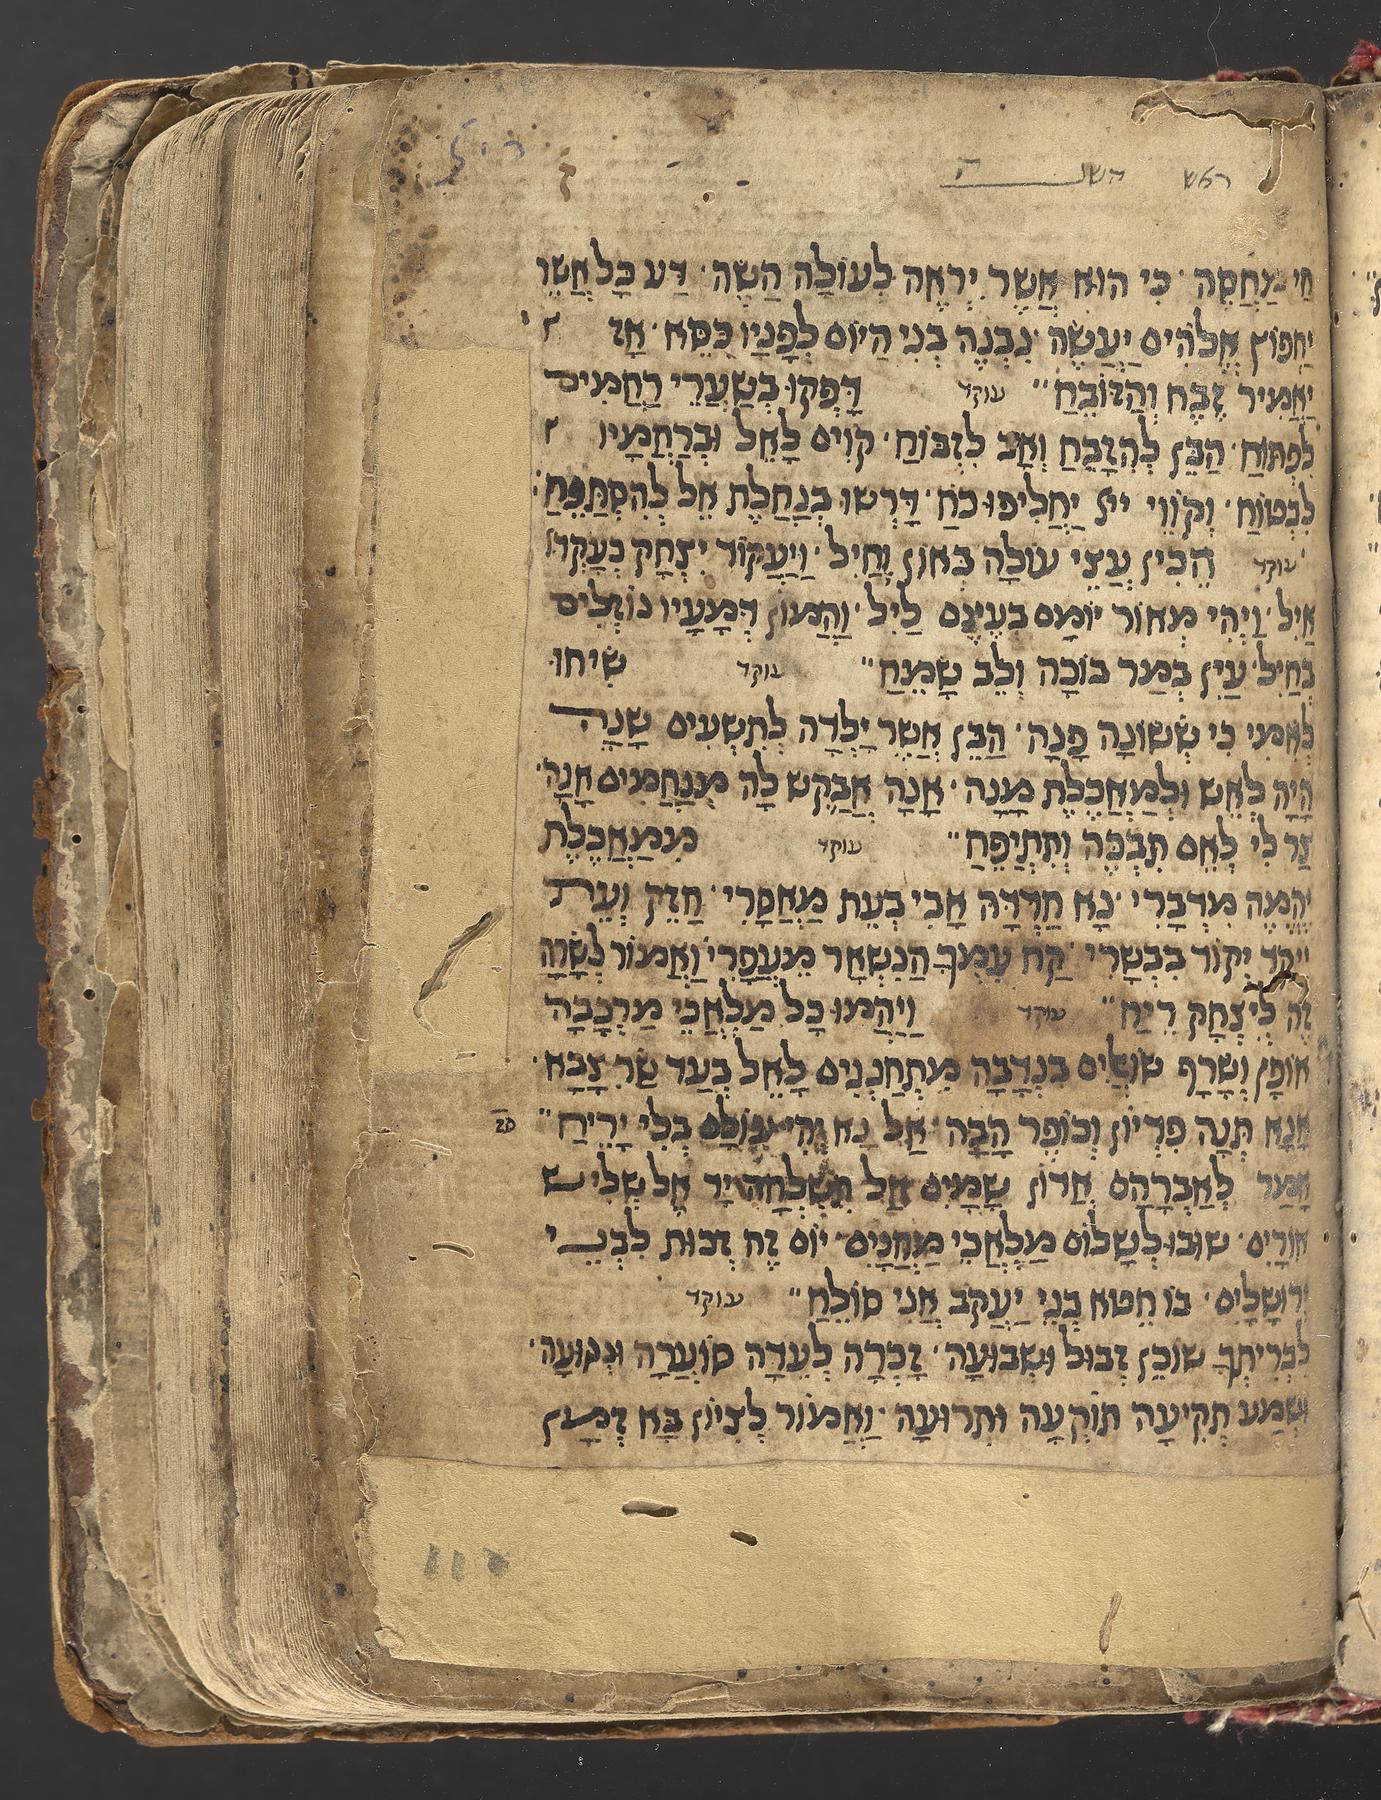 ראש השנה
חַי מַחֲסֶה · כִּי הוּא אֲשֶׁר יִרְאֶה לְעוֹלָה הַשֶּׂה · דַּע כָּל אֲשֶׁר
יַחְפּוֹץ אֱלֹהִים יַעֲשֶׂה · נִבְנֶה בְּנִי הַיּוֹם לְפָנָיו כִּסֵּא · אָז
יַאֲמִיר זֶבַח וְהַזּוֹבֵחַ" עוקד דָּפְקוּ בְּשַׁעֲרֵי רַחֲמִים
לִפְתּוֹחַ · הַבֵּן לְהִזָּבֵחַ וְאָב לִזְבּוֹחַ · קוִֹים לָאֵל וּבְרַחֲמָיו
לִבְטוֹחַ · וְקוֹוֵי ייי יַחֲלִיפוּ כֹחַ · דָּרְשׁוּ בְּנַחֲלַת אֵל לְהִסְתַּפֵּחַ
עוקד הֵכִין עֲצֵי עוֹלָה בְּאוֹן וָחַיִל · וַיַּעֲקוֹד יִצְחָק כְּעָקְדוֹ
אַיִל · וַיְהִי מְאוֹר יוֹמָם בְּעֵינָם לַיִל · וַהֲמוֹן דְּמָעָיו נוֹזְלִים
בְּחַיִל · עַיִן בְּמַר בּוֹכָה וְלֵב שָׂמֵחַ" עוקד שִׂיחוּ
לְאִמִּי כִּי שְׂשׂוֹנָהּ פָּנָה · הַבֵּן אֲשֶׁר יָלְדָה לְתִשְׁעִים שָׁנָה
הָיָה לְאֵשׁ וּלְמַאֲכֶלֶת מָנָה · אָנָה אֲבַקֵּשׁ לָהּ מְנַחֲמִים אָנָה ·
צַר לִי לְאֵם תִּבְכֶּה וְתִתְיַפֵּחַ" עוקד מִמַּאֲכֶלֶת
יֶהֱמֶה מִדְבָּרִי · נָא חַדְּדָהּ אָבִי בְּעֵת מַאֲסָרִי · חַזֵּק וְעֵת
יְקַד יְקוֹד בִּבְשָׂרִי · קַח עִמְּךָ הַנִּשְׁאָר מֵעֲפָרִי וֶאֱמוֹר לְשָׂרָה
זֶה לְיִצְחָק רֵיחַ" עוקד וַיֶּהֱמוּ כָּל מַלְאֲכֵי מֶרְכָּבָה
אוֹפָן וְשָׂרָף שׁוֹאֲלִים בִּנְדָבָה מִתְחַנְּנִים לָאֵל בְּעַד שַׂר צָבָא ·
אָנָּא תְּנָה פִדְיוֹן וְכוֹפֶר הָבָה · אַל נָא יְהִי עוֹלָם בְּלִי יָרֵיחַ"
אָמַר לְאַבְרָהָם אֲדוֹן שָׁמַיִם אַל תִּשְׁלְחָה יָד אֶל שְׁלִישׁ
אוּרִים · שׁוּבוּ לְשָׁלוֹם מַלְאֲכֵי מַחֲנַיִם · יוֹם זֶה זְכוּת לִבְנֵי
יְרוּשָׁלַיִם · בּוֹ חֵטְא בְּנֵי יַעֲקֹב אֲנִי סוֹלֵחַ" עוקד
לִבְרִיתְךָ שׁוֹכֵן זְבוּל וּשְׁבוּעָה · זָכְרָה לְעֵדָה סוֹעֲרָה וּנְגוּעָה ·
וּשְׁמַע תְּקִיעָה תּוֹקְעָה וּתְרוּעָה · וֶאֱמוֹר לְצִיּוֹן בָּא זְמָן